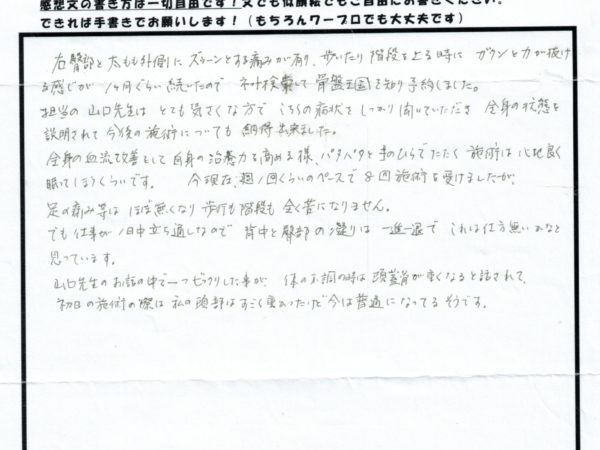 感想文の書き方は一切自由です！文でも似顔絵でもご自由にお書きください。
できれば手書きでお願いします！（もちろんワープロでも大丈夫です）
右臀部と太もも外側にズゥーンとする痛みが有り、歩いたり階段を上る時にガクンと力が抜け
る感じが1ヶ月ぐらい続いたのでネット検索して骨盤王国を知り予約しました。
担当の山口先生はとても気さくな方でこちらの病状をしっかり聞いていただき全身の状態を
説明されて今後の施術についても納得出来ました。
全身の血流改善として自身の治癒力を高める様、パタパタと手のひらでたたく施術は心地良く
眠ってしまうくらいです。今現在、週1回くらいのペースで8回施術を受けましたが、
足の痛み等はほぼ無くなり歩行も階段も全く苦になりません。
でも仕事が1日中立ち通しなので背中と臀部の凝りは一進一退でこれは仕方無いかなと
思っています。
山口先生のお話の中で一つビックリした事が、体の不調の時は頭蓋骨が重くなると話されて、
初日の施術の際は私の頭部はすごく重かったけど今は普通になってるそうです。